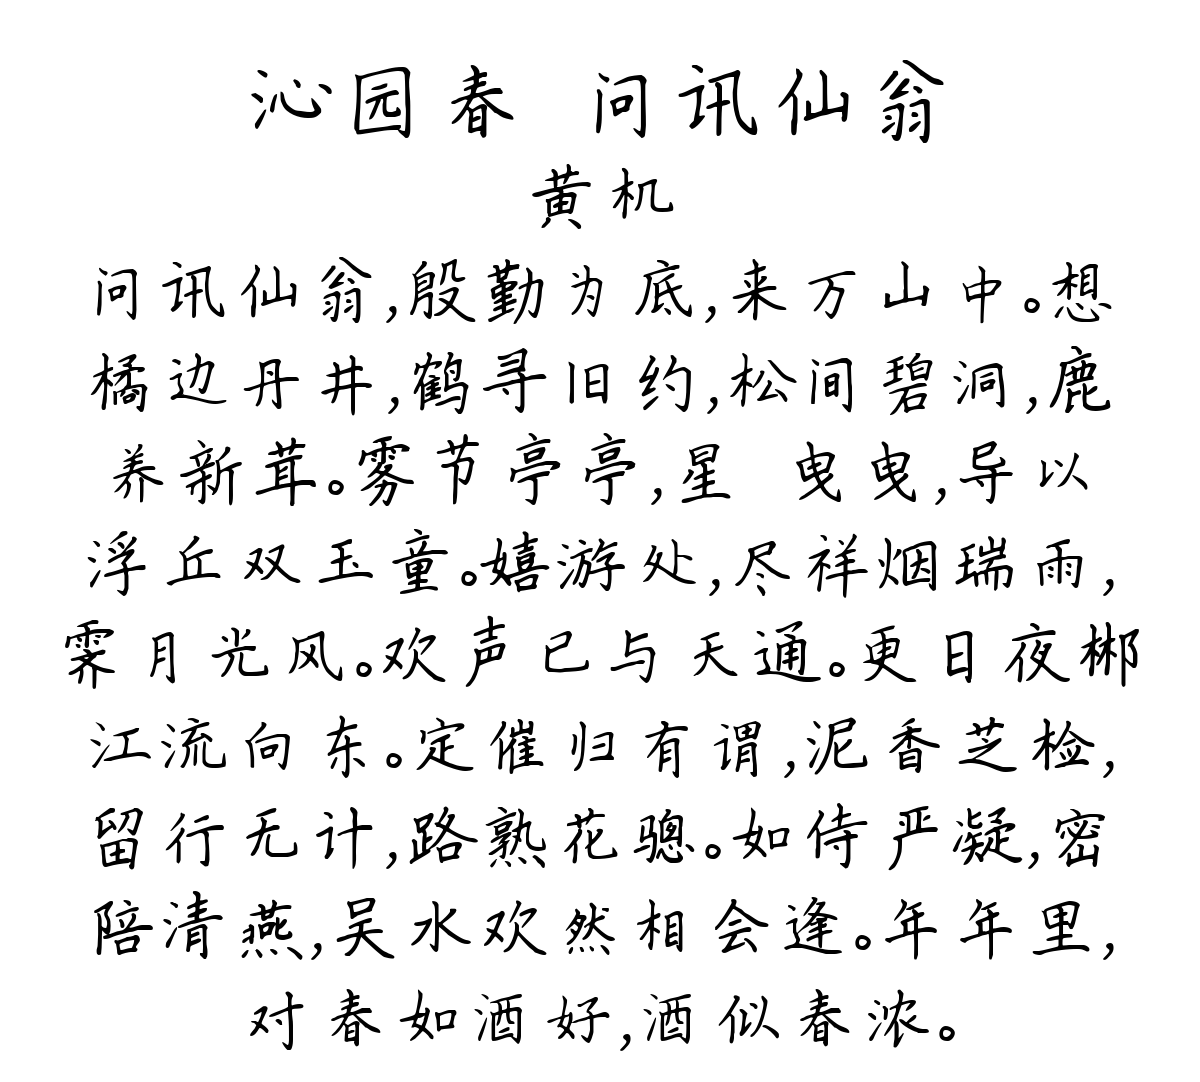 沁园春 问讯仙翁
黄机
问讯仙翁,殷勤为底,来万山中。想
橘边丹井,鹤寻旧约,松间碧洞,鹿
养新茸。雾节亭亭,星 曳曳,导以
浮丘双玉童。嬉游处,尽祥烟瑞雨,
霁月光风。欢声已与天通。更日夜郴
江流向东。定催归有谓,泥香芝检,
留行无计,路熟花骢。如侍严凝,密
陪清燕,吴水欢然相会逢。年年里,
对春如酒好,酒似春浓。